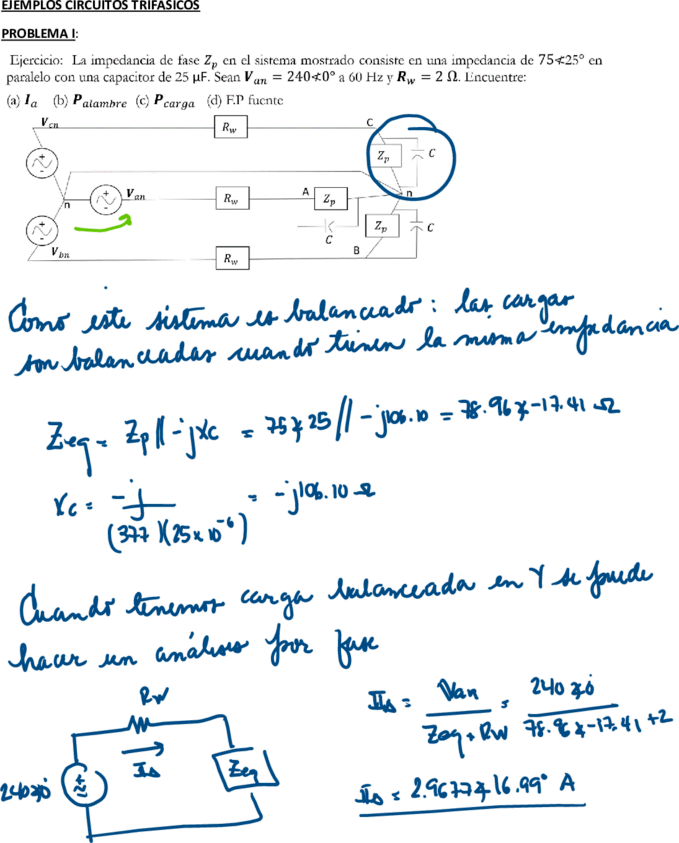 EJEMPLOS CIRCUITOS TRIFASICOS
PROBLEMA I:
Ejercicio: La impedancia de fase Zp en el sistema mostrado consiste en una impedancia de 75∢25° en
paralelo con una capacitor de 25 μF. Sean Van = 240∢0° a 60 Hz y Rw = 2 Ω. Encuentre:
(a) Ia (b) Palambre (c) Pcarga (d) F.P fuente
Vcn
Rw
C
Zp
C
n
Van
Rw
A
Zp
n
C
Zp
C
Vbn
Rw
B
Como este sistema es balanceado: las cargas
son balanceadas cuando tienen la misma impedancia
Zeq = Zp||-jXc = 75∡25//-j106.10 = 78.96∡-17.41 Ω
Xc = -j/(377)(25x10^-6) = -j106.10 Ω
Cuando tenemos carga balanceada en Y se puede
hacer un análisis por fase
Rw
Ia
Zeq
240∡0
Ia = Van/(Zeq+Rw) = 240∡0/(78.96∡-17.41+2)
Ia = 2.9677∡16.99° A